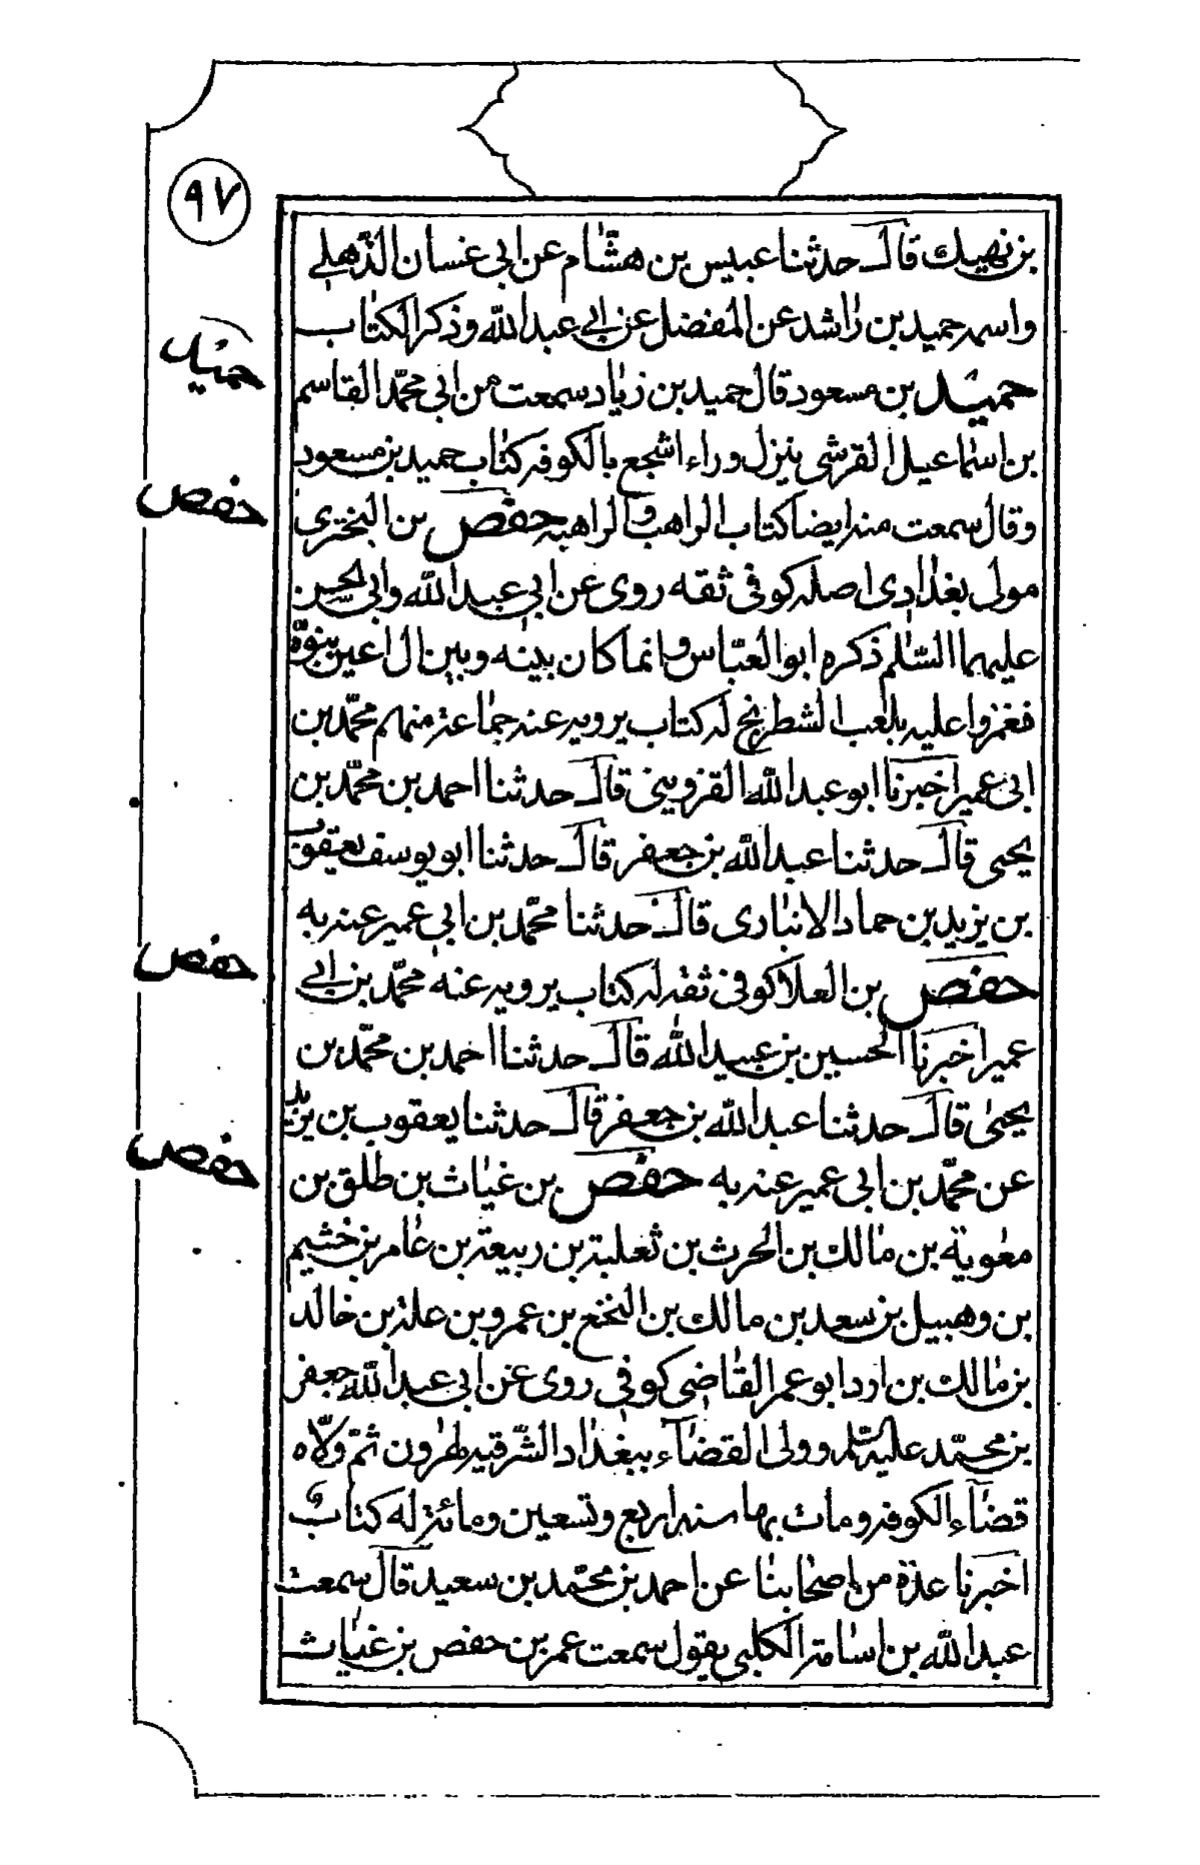 ٩٧
بن نهيك قال حدثنا عبيس بن هشام عن ابي غسان الذهلي
واسمه حميد بن راشد عن المفضل عن ابي عبدالله وذكر الكتاب
حميد
حميد بن مسعود قال حميد بن زياد سمعت من ابي محمد القاسم
بن اسماعيل القرشي ينزل وراء اشجع بالكوفه كتاب حميد بن مسعود
حفص
وقال سمعت منه ايضا كتاب الراهب والراهبه حفص بن البختري
مولى بغدادي اصله كوفي ثقه روى عن ابي عبدالله وابي الحسن
عليهما السلم ذكره ابو العباس وانما كان بينه وبين ال اعين بنوة
فغمزوا عليه بلعب الشطرنج له كتاب يرويه عنه جماعة منهم محمد بن
ابي عمير اخبرنا ابو عبدالله القزويني قال حدثنا احمد بن محمد بن
يحيى قال حدثنا عبدالله بن جعفر قال حدثنا ابو يوسف يعقوب
بن يزيد بن حماد الانباري قال حدثنا محمد بن ابي عمير عنه به
حفص
حفص بن العلا كوفي ثقه له كتاب يرويه عنه محمد بن ابي
عمير اخبرنا الحسين بن عبيدالله قال حدثنا احمد بن محمد بن
يحيى قال حدثنا عبدالله بن جعفر قال حدثنا يعقوب بن يزيد
حفص
عن محمد بن ابي عمير عنه به حفص بن غياث بن طلق بن
معوية بن مالك بن الحرث بن ثعلبة بن ربيعة بن عامر بن خشيم
بن وهبيل بن سعد بن مالك بن النخع بن عمرو بن علة بن خالد
بن مالك بن ادد ابو عمر القاضي كوفي روى عن ابي عبدالله جعفر
بن محمد عليه السلم وولى القضاء ببغداد الشرقيه لهرون ثم ولاه
قضاء الكوفه ومات بها سنه اربع وتسعين ومائة له كتاب
اخبرنا عدة من اصحابنا عن احمد بن محمد بن سعيد قال سمعت
عبدالله بن اسامة الكلبي يقول سمعت عمر بن حفص بن غياث